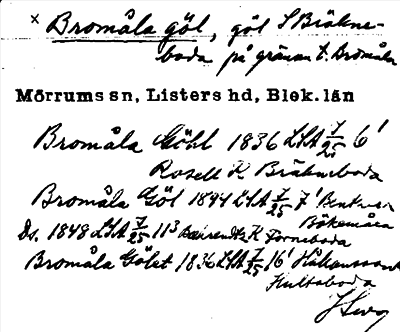 × Bromåla göl, göl S Bräkne-
boda på gränsen t. Bromåla
Mörrums sn, Listers hd, Blek. län
Bromåla Göhl 1836 LSA 7/25 6'
Rosell K. Bräkneboda
Bromåla Göl 1844 LSA 7/25 7'
Bökemåla
Ds. 1848 LSA 7/25 11³ Behrendtz K Farneboda
Bromåla Gölet 1836 LSA 7/25 16' Håkansson
Hultaboda